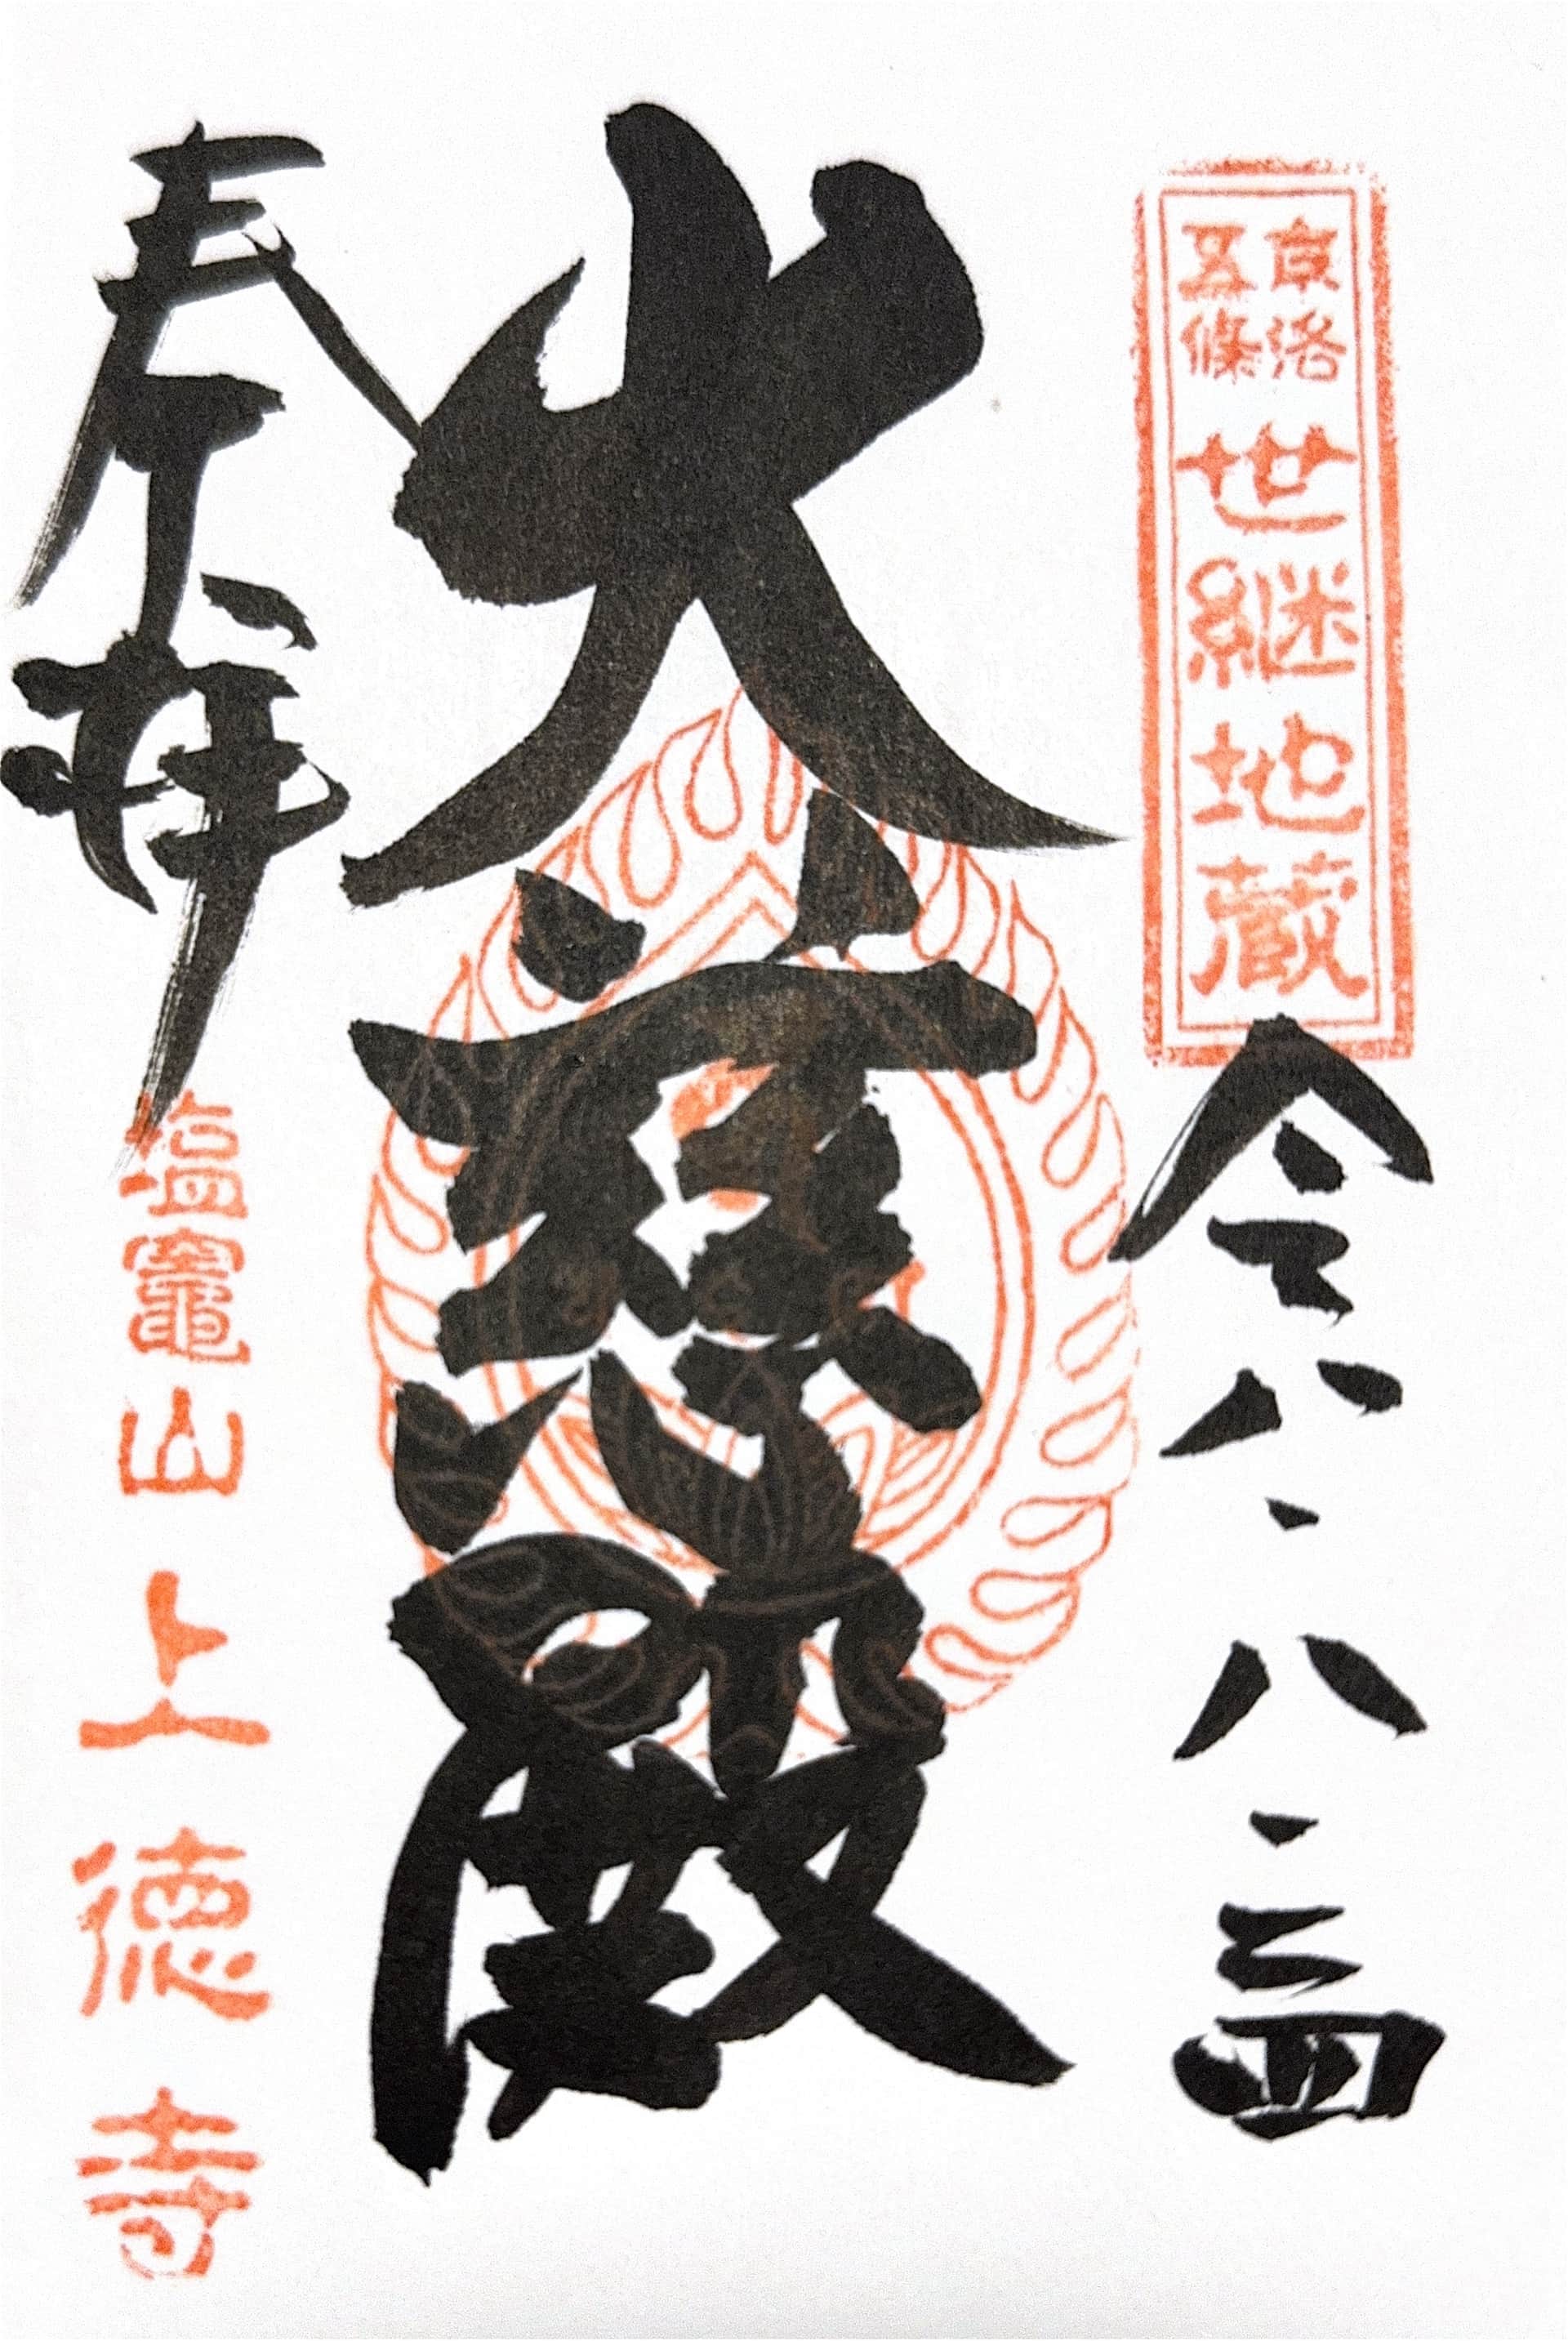 京洛
五條
世継地蔵
令八・八・二四
大慈殿
奉拝
塩竈山 上徳寺